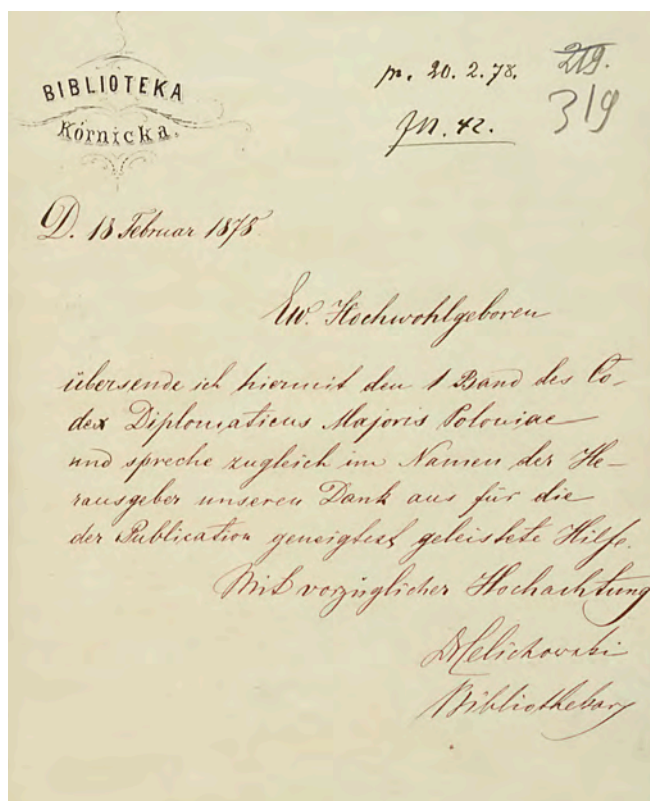 BIBLIOTEKA
Kórnicka.
pr. 20. 2. 78.
219.
JN. 42.
319
D. 18 Februar 1878.
Ew. Hochwohlgeboren
übersende ich hiermit den 1 Band des Co-
dex Diplomaticus Majoris Poloniae
und spreche zugleich im Namen der He-
rausgeber unseren Dank aus für die
der Publication geneigtest geleistete Hilfe.
Mit vorzüglicher Hochachtung
Bibliothekar